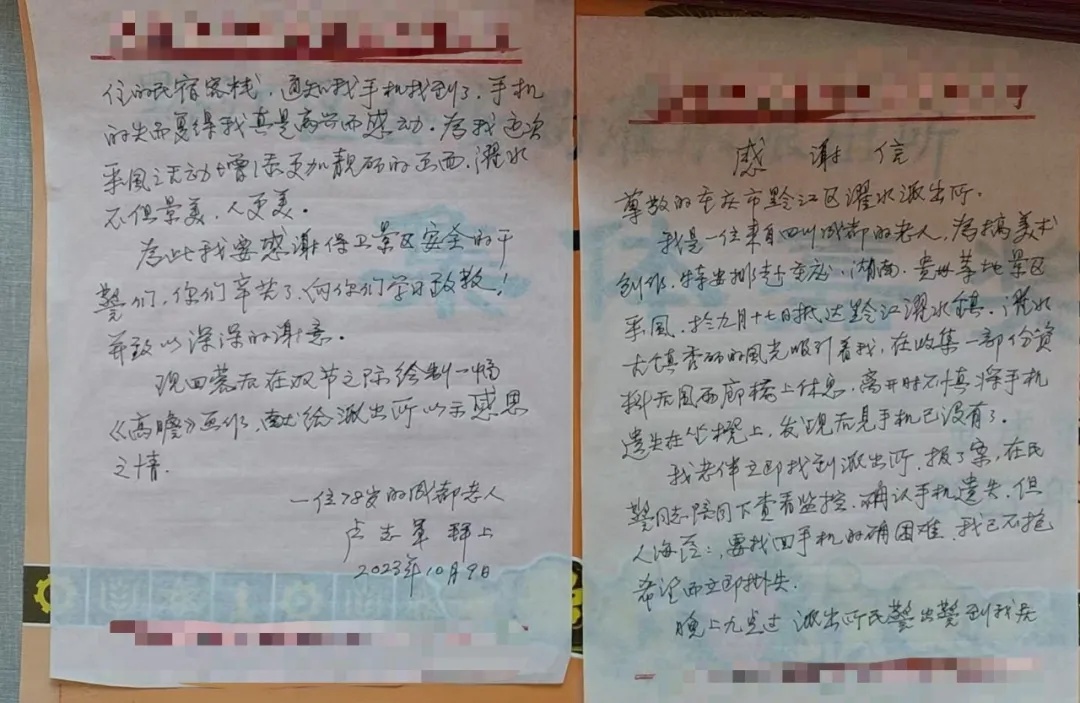 感谢信
尊敬的重庆市黔江区濯水派出所.
我是一位来自四川成都的老人,為搞美术
创作.特安排赴重庆,湖南.贵州等地景区
采風.於九月十七日抵达黔江濯水镇.濯水
古镇秀丽的風光吸引着我,在收集一部份资
料后風雨廊橋上休息,离开时不慎将手机
遗失在坐櫈上,发现后見手机已没有了.
我老伴立即找到派出所.报了案,在民
警同志陪同下查看监控.确认手机遗失.但
人海茫:,要找回手机的确困难.我已不抱
希望而立即掛失.
晚上九点过派出所民警出警到我居
住的民宿客栈,通知我手机找到了.手机
的失而复得我真是高兴而感动.為我这次
采風活动增添更加靓丽的色.濯水
不但景美,人更美.
為此我要感谢保卫景区安全的干
警们,你们辛苦了.向你们学习致敬!
并致以深深的谢意.
现回蓉后在双节之际绘制一幅
《高瞻》画作,献给派出所以示感恩
之情.
一位78岁的成都老人
卢志军 拜上
2023年10月9日